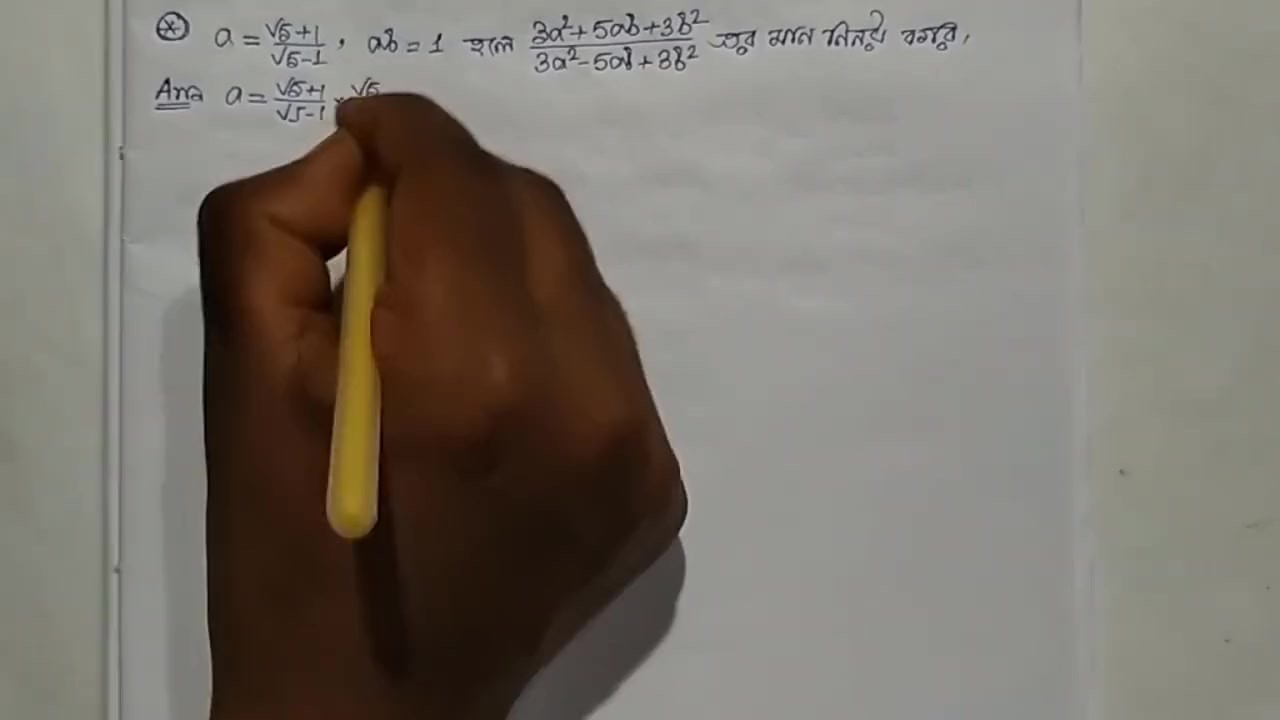 * a = (√5+1)/(√5-1), ab = 1 হলে (3a²+5ab+3b²)/(3a²-5ab+3b²) এর মান নির্ণয় করুন,
Ans a = (√5+1)/(√5-1) × √5